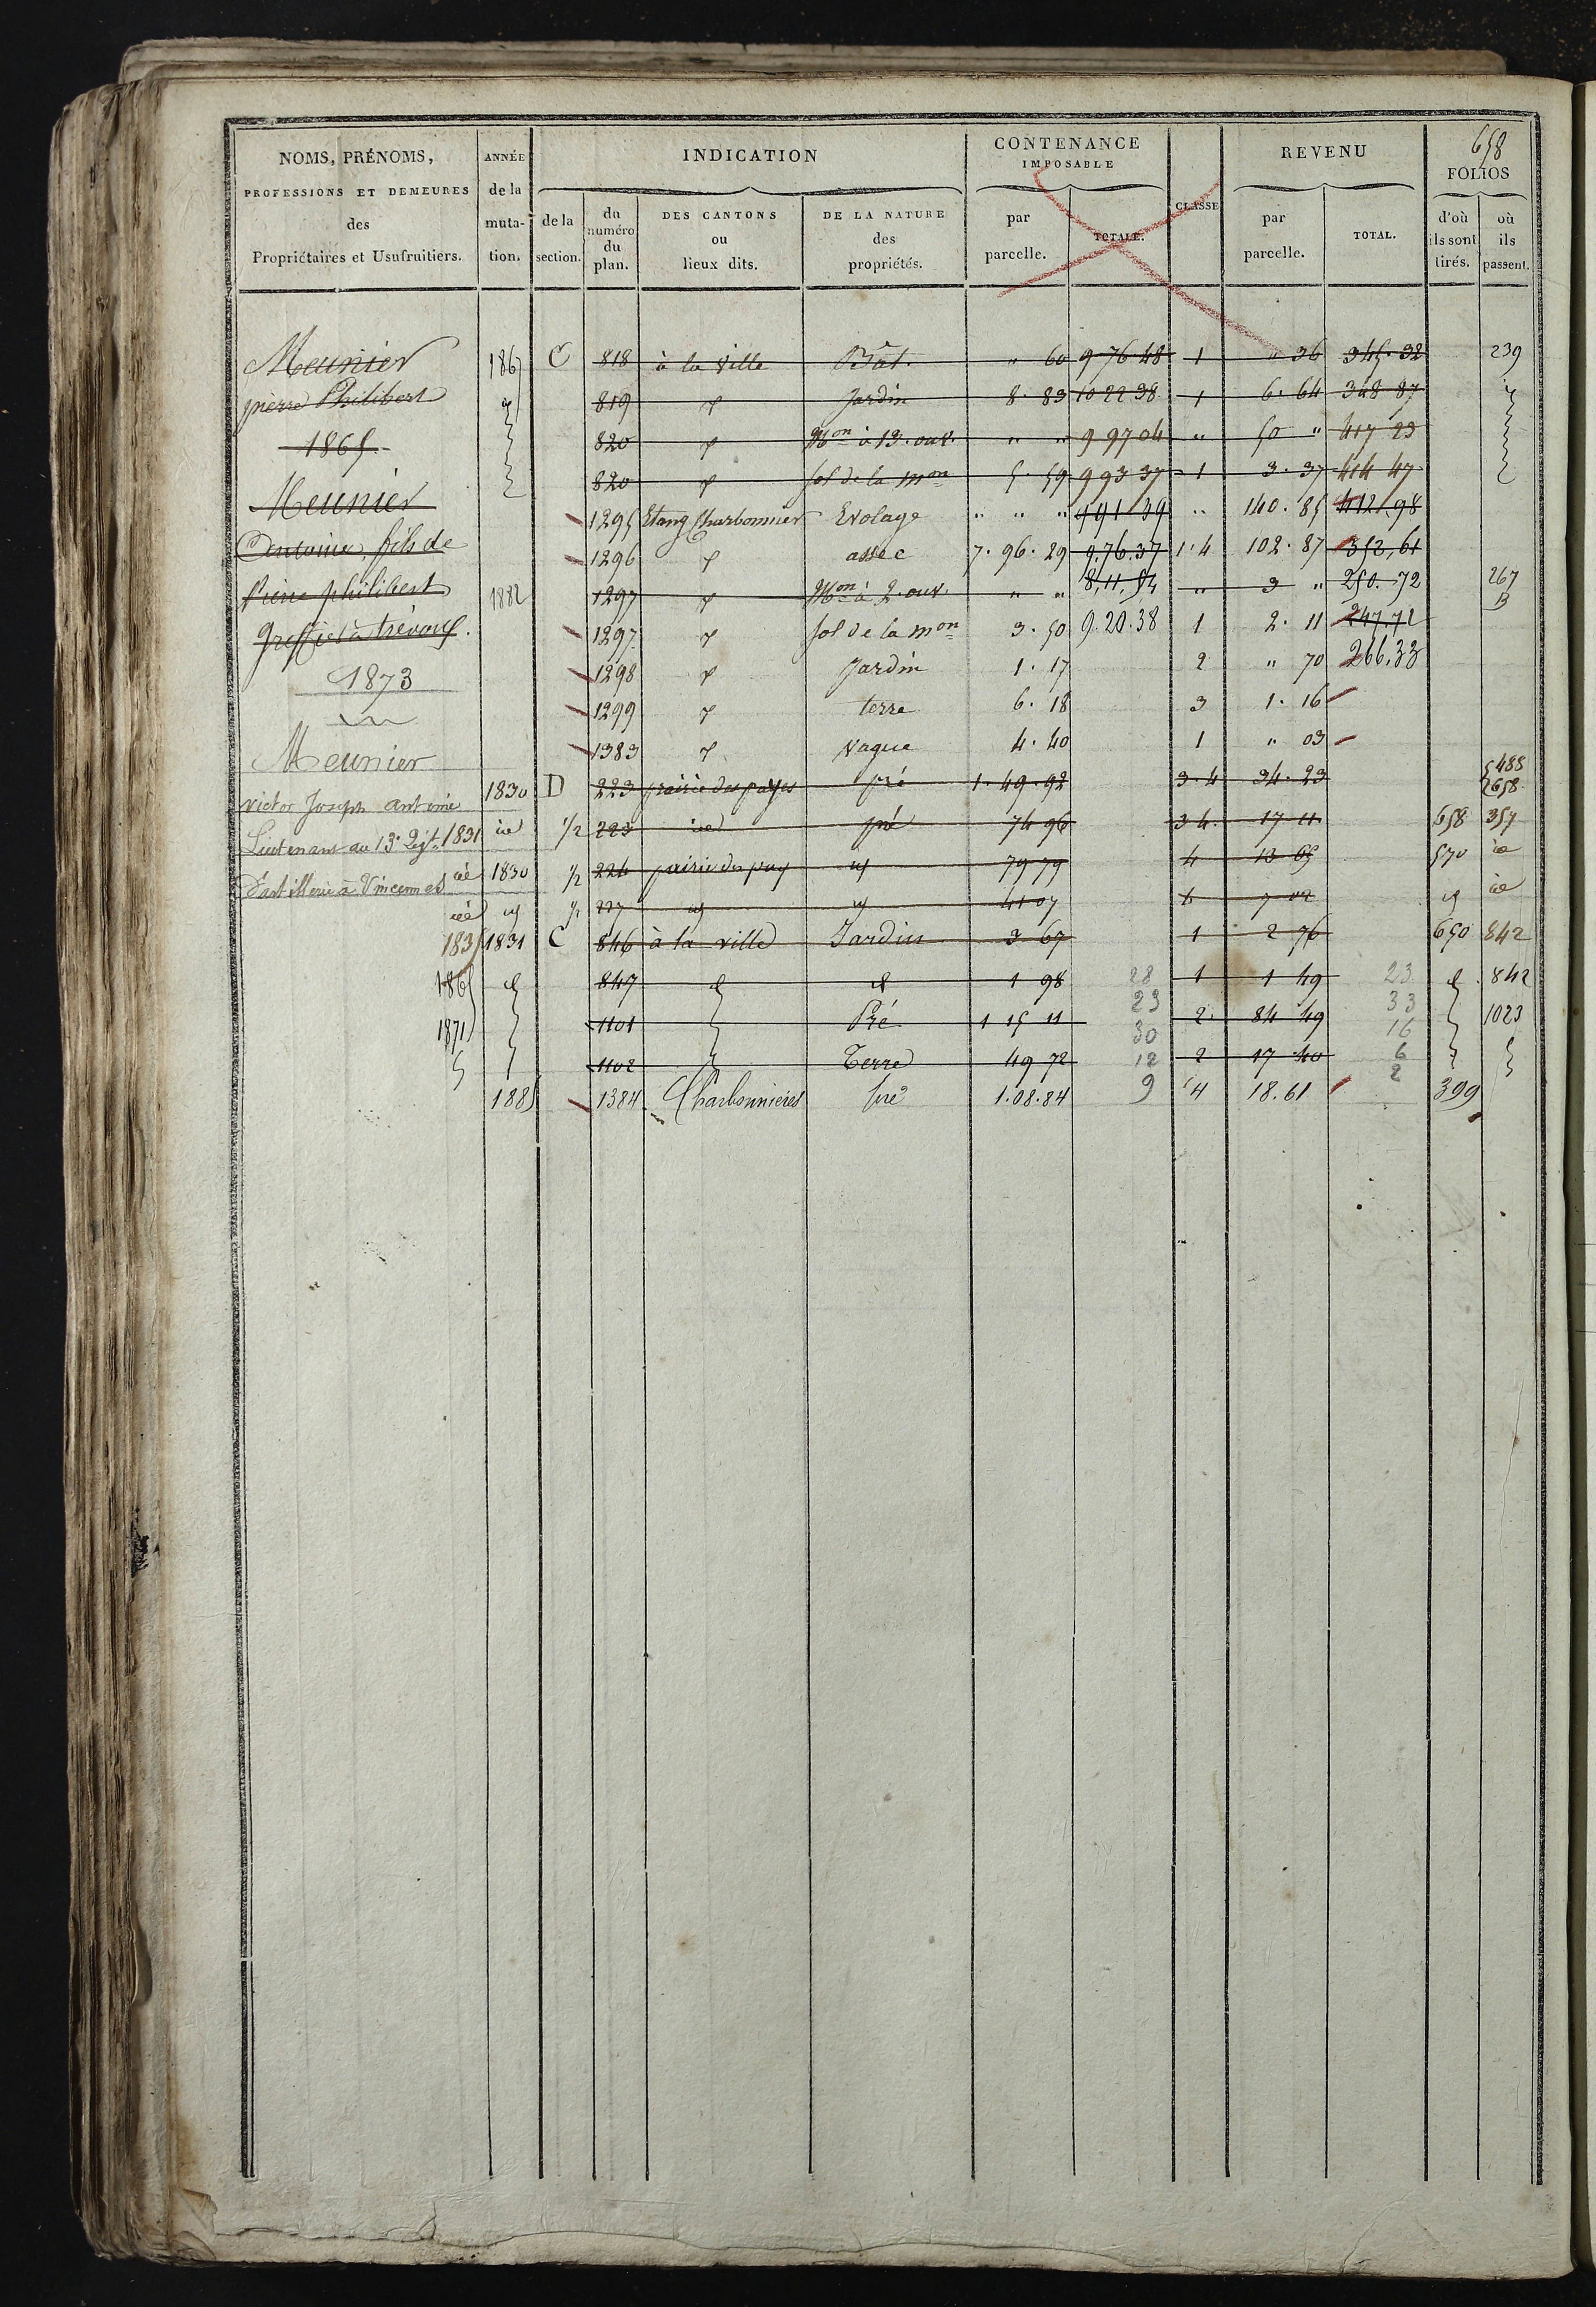 658
NOMS, PRÉNOMS, ANNÉE INDICATION CONTENANCE IMPOSABLE CLASSE REVENU FOLIOS
PROFESSIONS ET DEMEURES de la
des muta- de la du numéro du plan. DES CANTONS ou lieux dits. DE LA NATURE des propriétés. par parcelle. TOTALE. par parcelle. TOTAL. d'où ils sont tirés. où ils passent.
Propriétaires et Usufruitiers. tion. section.
Meunier 1867 C 818 à la ville Bât. " 60 9 76 48 1 " 36 345. 32 239
pierre Philibert 819 Jardin 8. 83 10 22 38 1 6. 64 348 87
1865 820 Mon à 13. ouv. " " 9 97 04 " 50 " 417 23
820 sol de la mon 5. 59 9 93 37 1 3. 37 414 47
Meunier 1295 Etang Charbonnier Evolage " " " 9 91 39 " 140. 85 412. 98
Antoine, fils de 1296 assec 7. 96. 29 9.76.37 1. 4 102. 87 352, 61
Pierre philibert 1882 1297 Mon à 2. ouv. " " 8,11,54 " 3 " 250. 72 267 B
Greffier à trévoux. 1297 sol de la mon 3. 50 9.20.38 1 2. 11 247.72
1873 1298 Jardin 1. 17 2 " 70 266,33
1299 terre 6. 18 3 1. 16
Meunier 1383 vague 4. 40 1 " 03
victor Joseph antoine 1830 D 223 prairie des payes pré 1. 49. 92 3. 4 34. 23 488 658
Lieutenant au 13e Régt. 1831 id 1/2 223 id pré 74 96 3 4. 17 11 658 357
d'artillerie à Vincennes id 1830 1/2 224 prairie des pay 79 79 4 13 65 570 id
id 1/2 227 41 07 4 7 02 id
1835 1831 C 846 à la ville Jardin 3 67 1 2 76 650 842
1865 847 1 98 28 1 1 49 23 842
1871 1101 Pré 1 15 11 23 2 84 49 33 1023
1102 Terre 49 72 30 12 2 17 40 16 6
1885 1384 Charbonnières pré 1.08.84 9 4 18.61 2 399